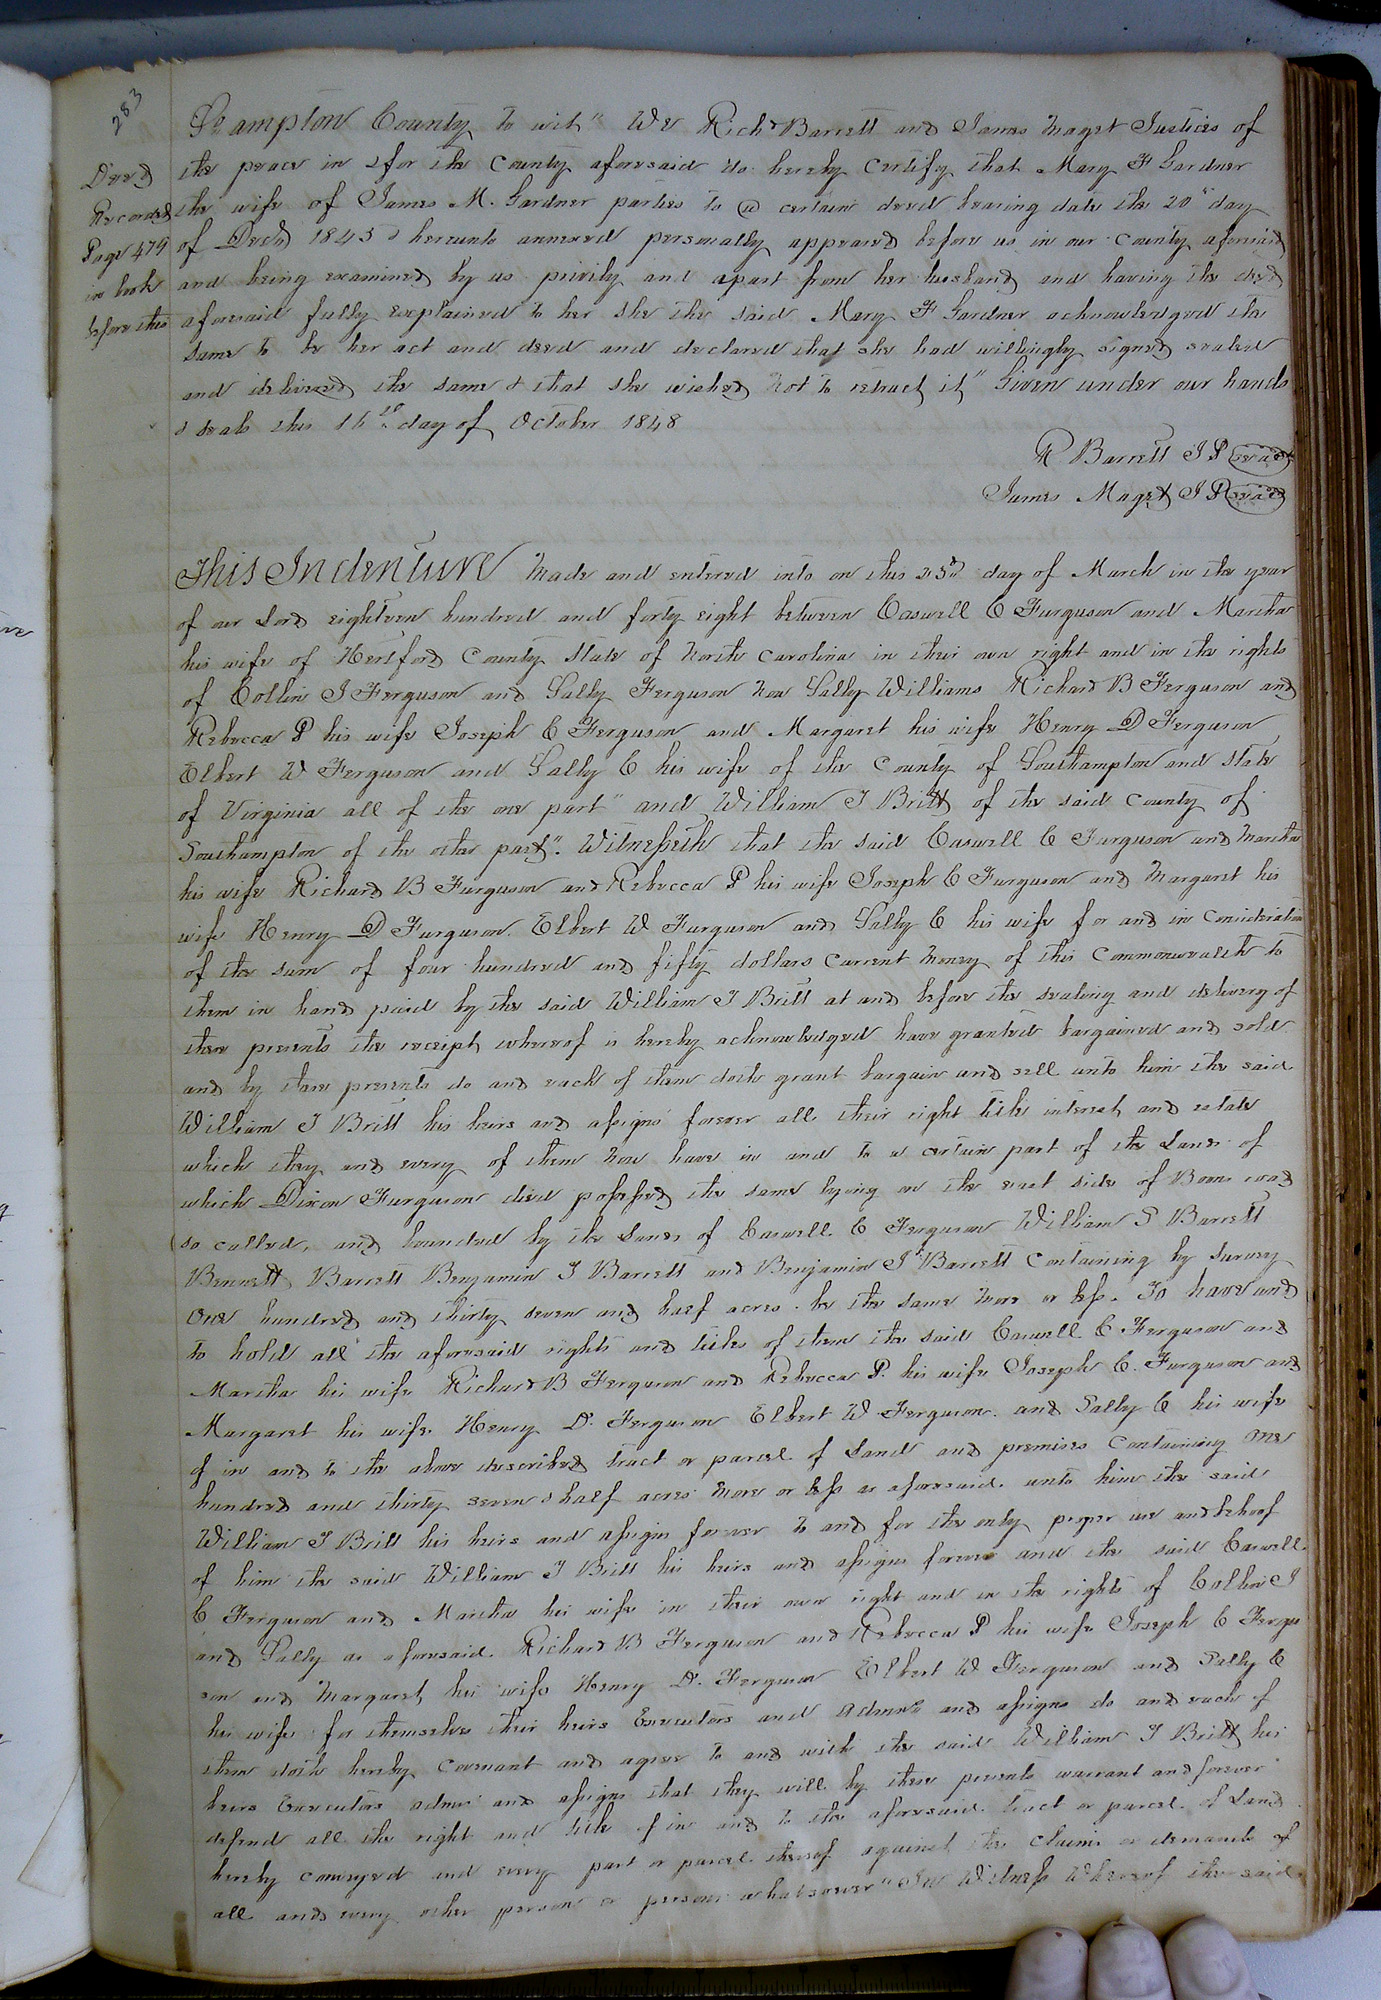 283
Deed
Recorded
Page 479
in book
before this
So ampton County to wit" We Richd Barrett and James Maget Justices of
the peace in & for the County aforesaid do hereby Certify that Mary F Gardner
the wife of James M. Gardner parties to a certain deed bearing date the 20th day
of Decr 1845 & hereunto annexed personally appeared before us in our County aforesaid
and being examined by us privily and apart from her husband and having the deed
aforesaid fully explained to her she the said Mary F Gardner acknowledged the
same to be her act and deed and declared that she had willingly signed sealed
and delivered the same & that she wished not to retract it" Given under our hands
& seals this 16th day of October 1848
R Barrett J P seal
James Maget J P seal
This Indenture Made and entered into on this 25th day of March in the year
of our Lord eighteen hundred and forty eight between Caswell C Furguson and Martha
his wife of Hertford County State of North Carolina in their own right and in the rights
of Collin J Ferguson and Sally Ferguson now Sally Williams Richard B Ferguson and
Rebecca P his wife Joseph C Ferguson and Margaret his wife Henry D Ferguson
Elbert W Ferguson and Sally C his wife of the County of Southampton and State
of Virginia all of the one part" and William J Britt of the said County of
Southampton of the other part". Witnesseth that the said Caswell C Furguson and Martha
his wife Richard B Furguson and Rebecca P his wife Joseph C Furguson and Margaret his
wife Henry D Furguson. Elbert W Furguson and Sally C his wife for and in Consideration
of the sum of four hundred and fifty dollars current money of this Commonwealth to
them in hand paid by the said William J Britt at and before the sealing and delivery of
these presents the receipt whereof is hereby acknowledged have granted bargained and sold
and by these presents do and each of them doth grant bargain and sell unto him the said
William J Britt his heirs and assigns forever all their right title interest and estate
which they and every of them now have in and to a certain part of the Land of
which Dixon Furguson died possessed the same lying on the east side of Boons road
so called, and bounded by the Lands of Caswell C Ferguson William S Barrett
Bennett Barrett Benjamin J Barrett and Benjamin J Barrett Containing by survey
One hundred and thirty seven and half acres be the same more or less. To have and
to hold all the aforesaid rights and titles of them the said Caswell C Ferguson and
Martha his wife Richard B Ferguson and Rebecca P. his wife Joseph C. Furguson and
Margaret his wife Henry D. Ferguson Elbert W Ferguson. and Sally C his wife
of in and to the above described tract or parcel of Land and premises Containing one
hundred and thirty seven & half acres more or less as aforesaid unto him the said
William J Britt his heirs and assigns forever to and for the only proper use and behoof
of him the said William J Britt his heirs and assigns forever and the said Caswell
C Ferguson and Martha his wife in their own right and in the rights of Collin J
and Sally as aforesaid. Richard B Ferguson and Rebecca P his wife Joseph C Fergu
son and Margaret his wife Henry D. Ferguson Elbert W Ferguson and Sally C
his wife for themselves their heirs Executors and Admrs and assigns do and each of
them doth hereby Covenant and agree to and with the said William J Britt his
heirs Executors admrs and assigns that they will by these presents warrant and forever
defend all the right and title of in and to the aforesaid tract or parcel of Land
hereby conveyed and every part or parcel thereof against the claims or demands of
all and every other person or persons whatsoever" In Witness Whereof the said